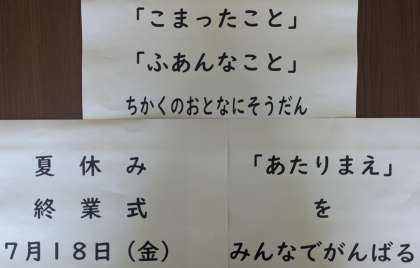 「こまったこと」
「ふあんなこと」
ちかくのおとなにそうだん
夏休み
終業式
7月18日(金)
「あたりまえ」
を
みんなでがんばる